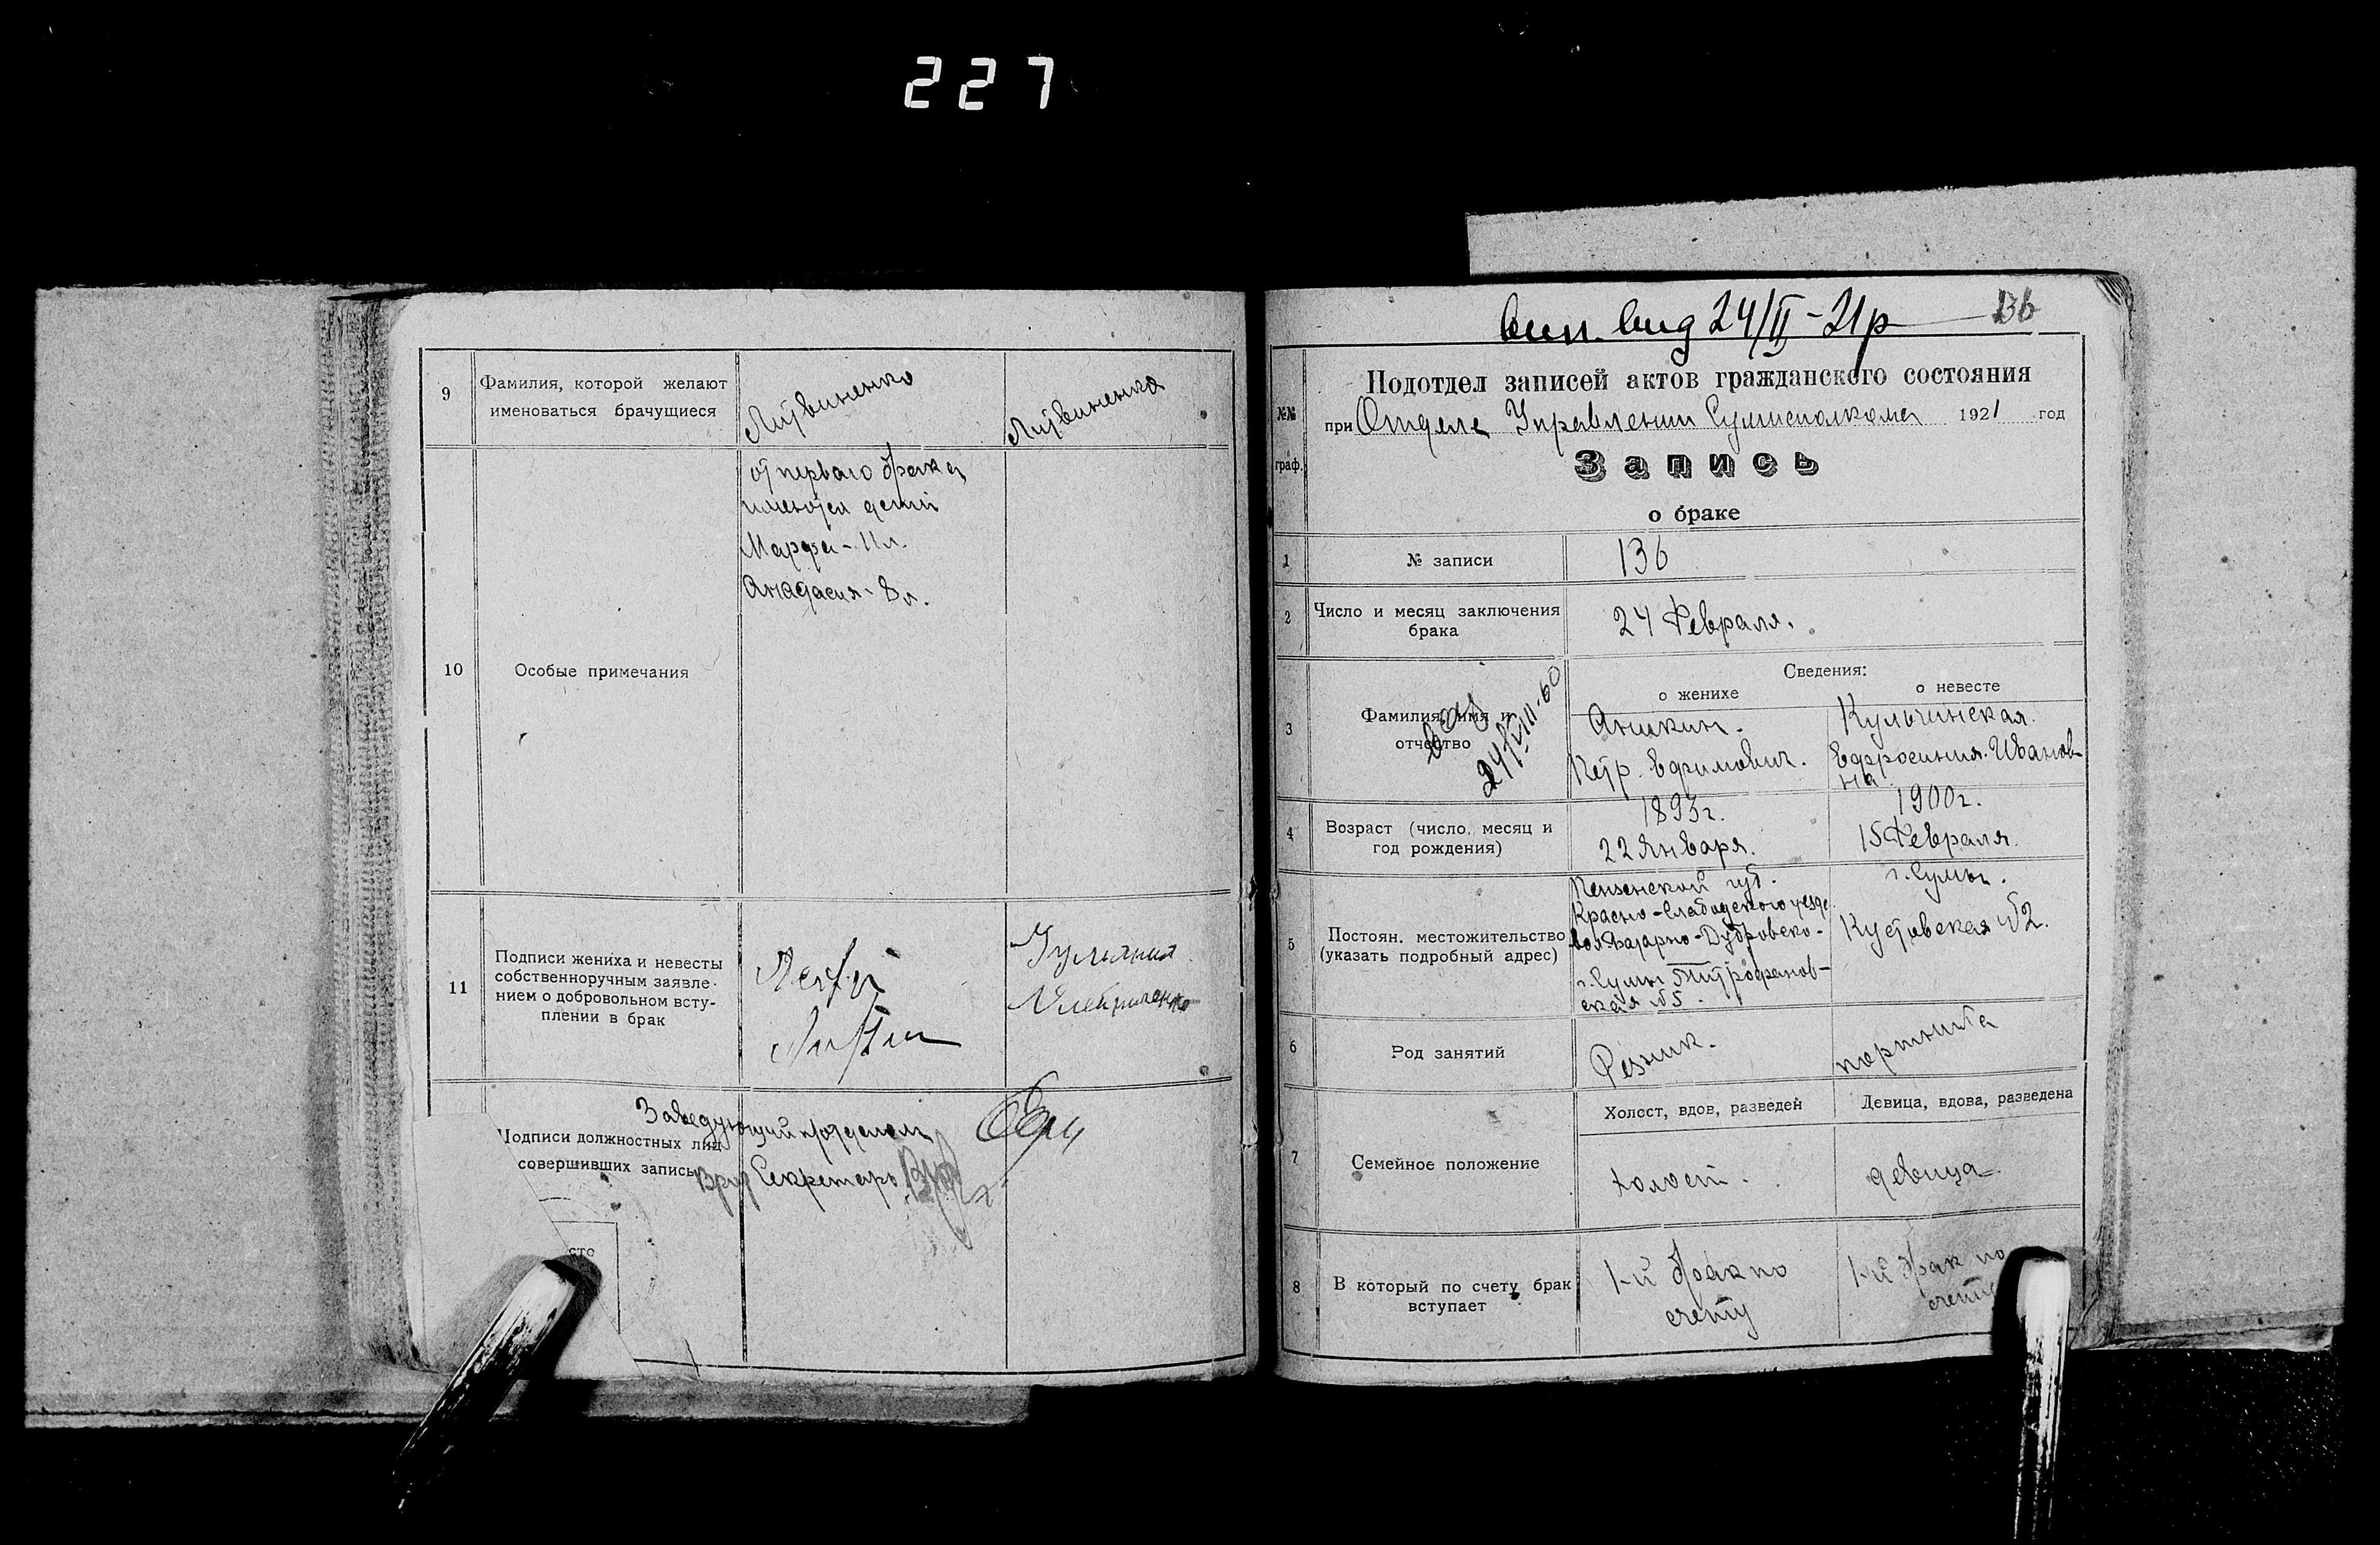 227
9
Фамилия, которой желают
именоваться брачущиеся
Литвиненко
Литвиненко
10
Особые примечания
от перваго брака
имеются дети
Марфа - 11 л.
Анастасия - 8 л.
11
Подписи жениха и невесты
собственноручным заявле-
нием о добровольном всту-
плении в брак
Заведующий п/отделом
Подписи должностных лиц
совершивших запись
Врид Секретарь
сто
вид 24/II - 21 р
136
№№
граф.
Подотдел записей актов гражданского состояния
при Отделе Управлении Сумисполкома 1921 год
Запись
о браке
1
№ записи
136
2
Число и месяц заключения
брака
24 Февраля.
Сведения:
о женихе
о невесте
3
Фамилия, имя и
отчество
24/VIII-60
Аникин.
Петр. Ефимович.
Кульчинская.
Ефросиния. Иванов-
на
4
Возраст (число, месяц и
год рождения)
1893 г.
22 Января.
1900 г.
15 Февраля.
5
Постоян. местожительство
(указать подробный адрес)
Пензенской губ.
Красно-Слабодского уезда.
вол. Базарно-Дубровско-
г. Сумы Митрофанов-
ская №5.
г. Сумы.
Кустовская №2.
6
Род занятий
Резник.
портниха
7
Семейное положение
Холост, вдов, разведен
Девица, вдова, разведена
холост.
девица
8
В который по счету брак
вступает
1-й брак по
счету
1-й брак по
счету